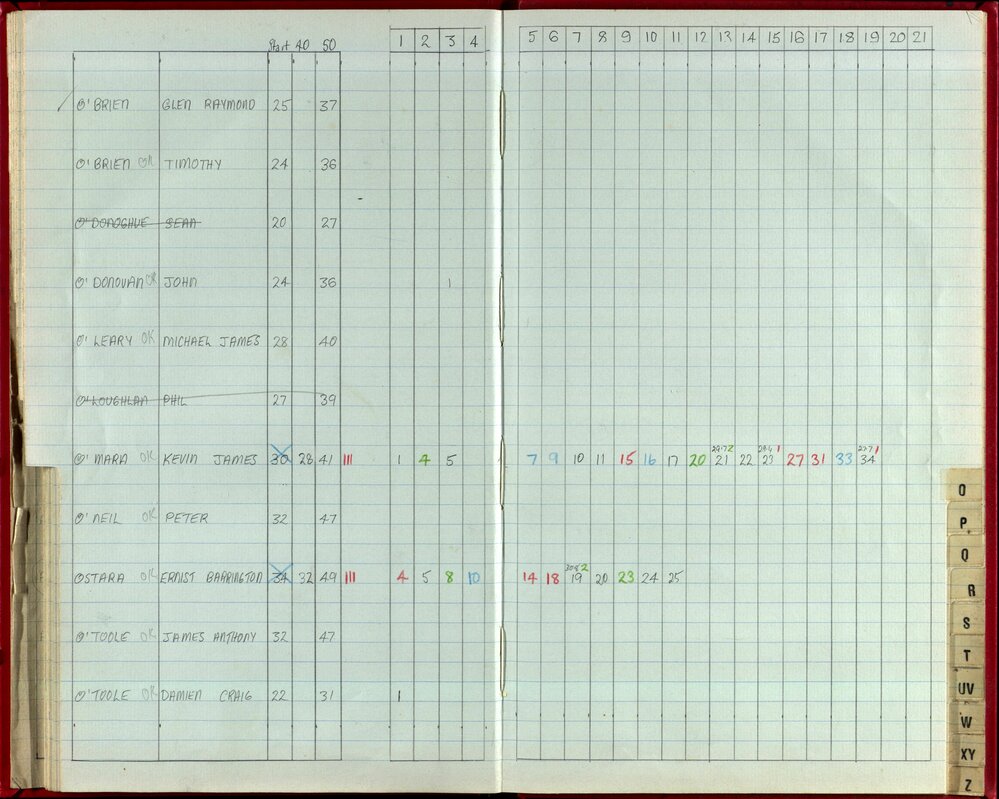 Start 40 50 1 2 3 4 5 6 7 8 9 10 11 12 13 14 15 16 17 18 19 20 21
O'BRIEN GLEN RAYMOND 25 37
O'BRIEN OK TIMOTHY 24 36
O'DONOGHUE SEAN 20 27
O'DONOVAN OK JOHN 24 36 1
O'LEARY OK MICHAEL JAMES 28 40
O'LOUGHLAN PHIL 27 39
O'MARA OK KEVIN JAMES 30 28 41 111 1 4 5 7 9 10 11 15 16 17 20 21 22 23 27 31 33 34
O'NEIL OK PETER 32 47
O
P
Q
OSTARA OK ERNIST BARRINGTON 34 32 49 111 4 5 8 10 14 18 19 20 23 24 25
R
S
O'TOOLE OK JAMES ANTHONY 32 47
T
UV
O'TOOLE OK DAMIEN CRAIG 22 31 1
W
XY
Z